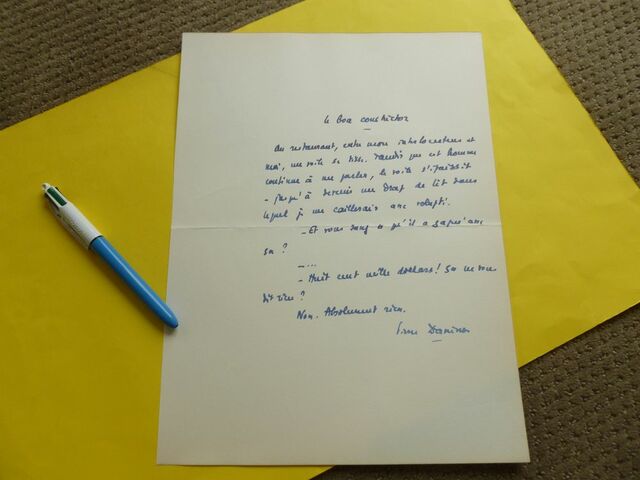 le boa constrictor
Au restaurant, entre mon interlocuteur et
moi, un voile se tisse. Tandis que cet homme
continue à me parler, le voile s'épaissit
- jusqu'à devenir un drap de lit dans
lequel je me
- Et vous savez ce qu'il a gagné avec
ça ?
- ...
- Huit cent mille dollars ! Ça ne vous
dit rien ?
Non. Absolument rien.